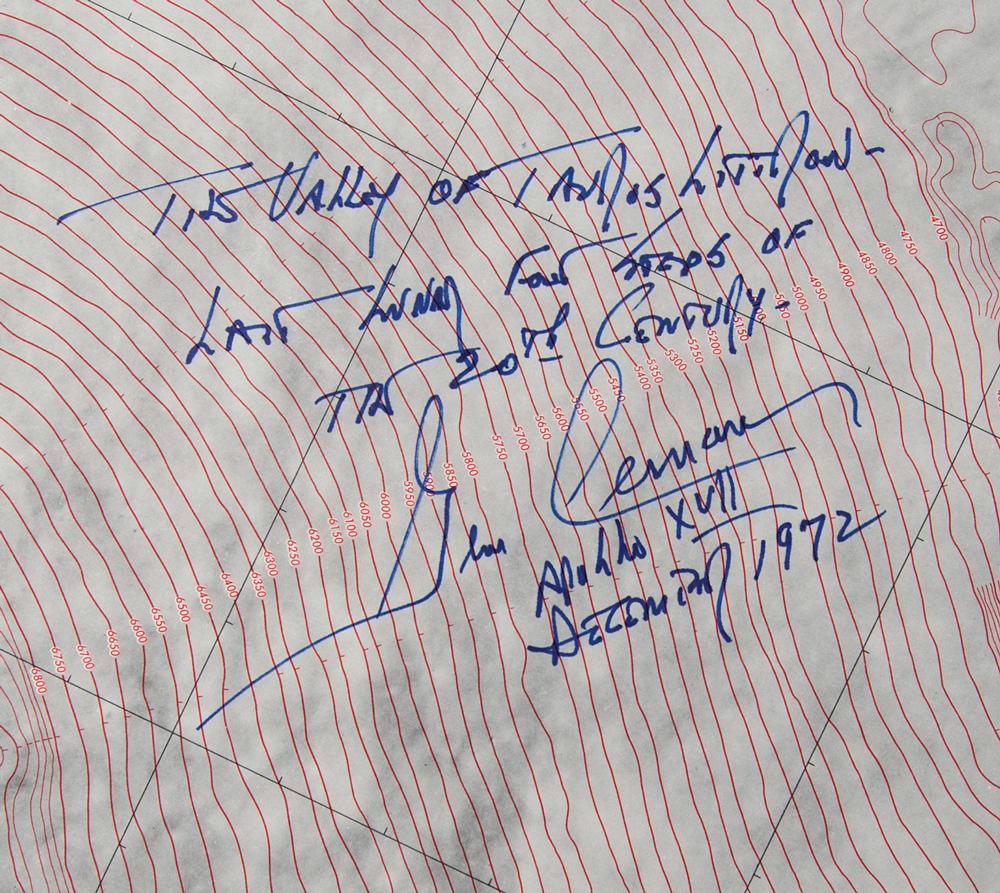 The Valley of Taurus Littrow -
Last Lunar Foot Steps of
The 20th Century -
Gene Cernan
Apollo XVII
December 1972
4700
4750
4800
4850
4900
4950
5000
5050
5150
5200
5250
5300
5350
5400
5450
5500
5550
5600
5650
5700
5750
5800
5850
5900
5950
6000
6050
6100
6150
6200
6250
6300
6350
6400
6450
6500
6550
6600
6650
6700
6750
6800